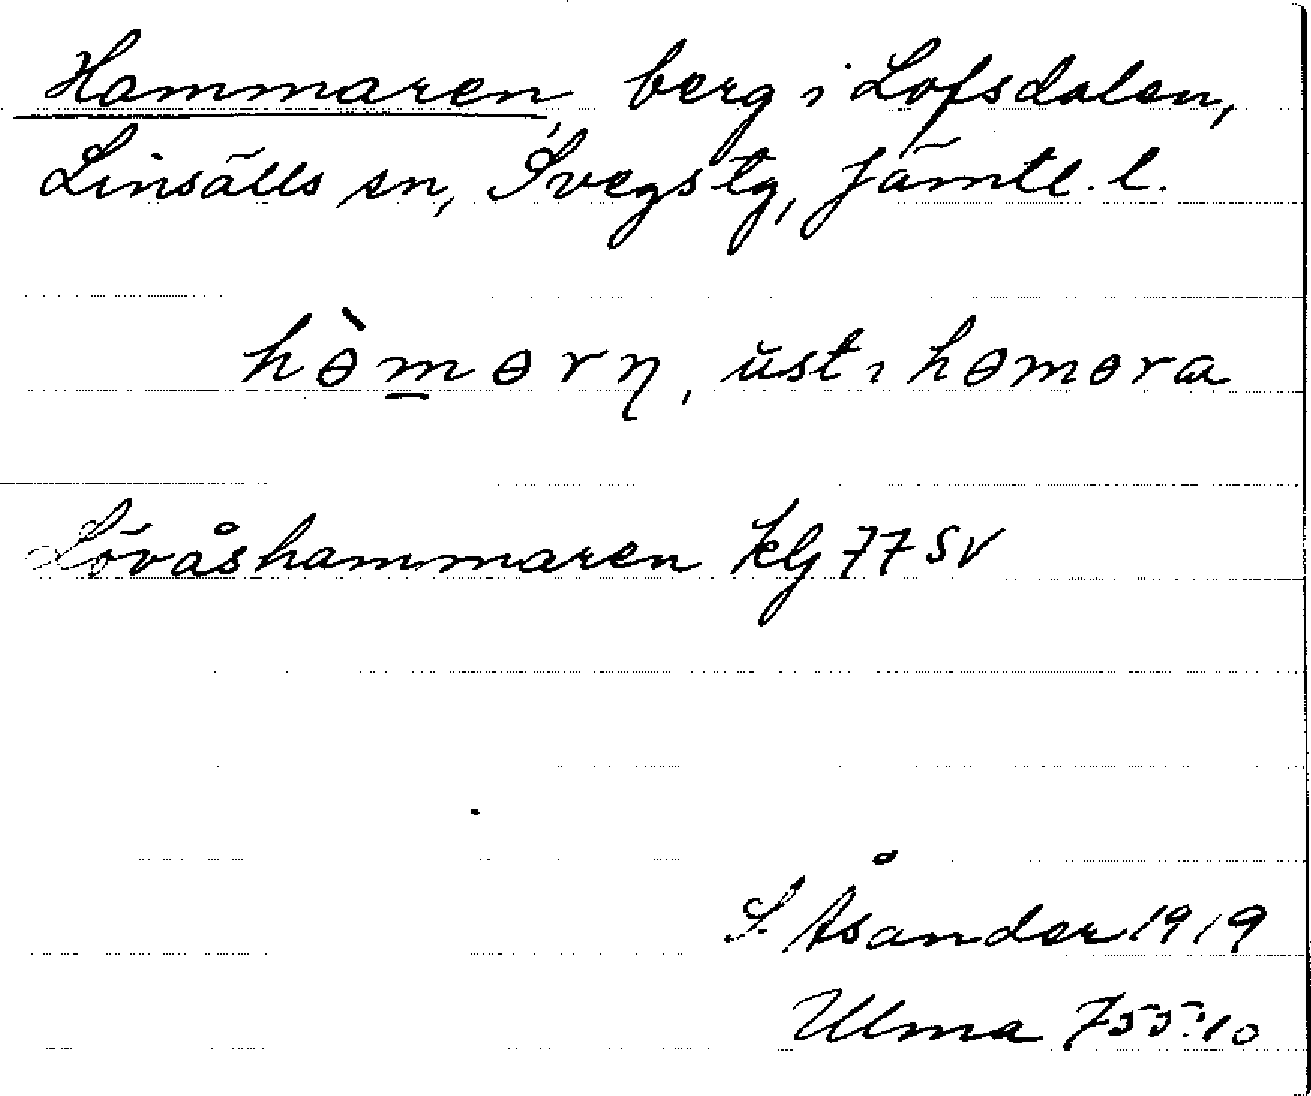 Hammaren, berg i Lofsdalen,
Linsälls sn, Svegs tg, Jämtl. l.
hɵ̀m̲ɵrŋ, ust ı hɵmɵra
Lövåshammaren klj 77 SV
S. Åsander 1919
Ulma 755:10